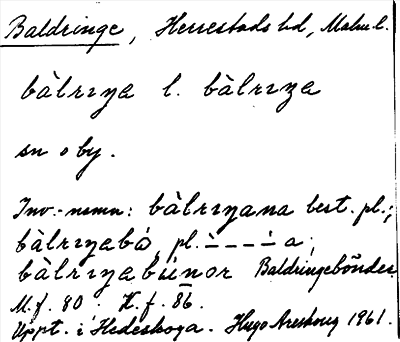 Baldringe, Herrestads hd, Malm l.
bàlrıŋa l. bàlrıŋa
sn o by.
Inv.-namn: bàlrıŋana best. pl.;
bàlrıŋabó, pl. ˋ---ˊa;
bàlrıŋabúnor Baldringebönder
M.f. 80. K.f. 86.
Uppt. i Hedeskoga. Hugo Areskoug 1961.